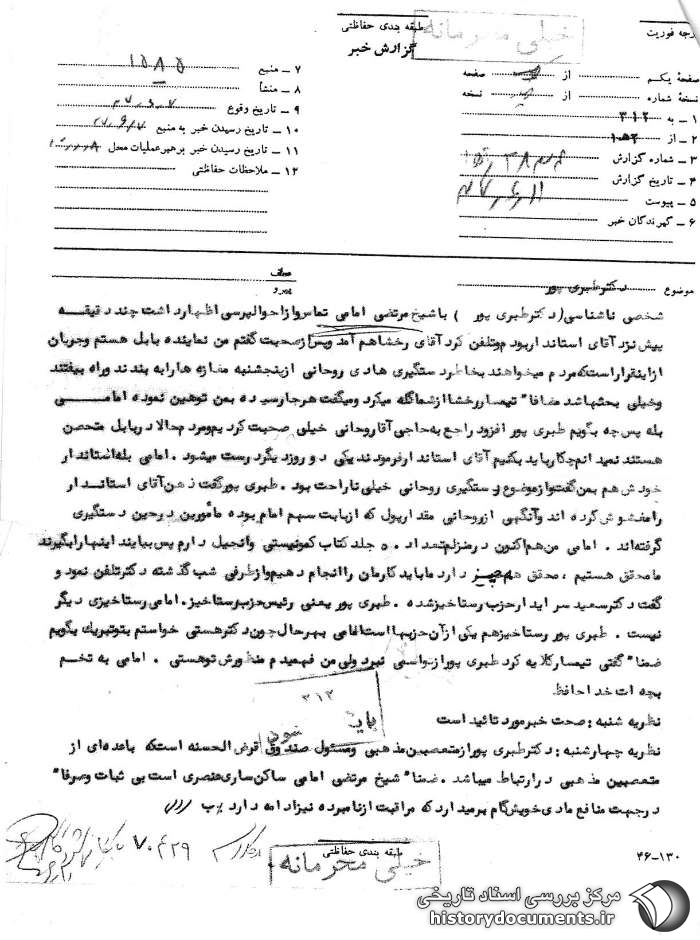 درجه فوریت
طبقه بندی حفاظتی
خیلی محرمانه
گزارش خبر
صفحهٔ یکم از صفحه
نسخهٔ شماره از نسخه
۱ ــ به ۳۱۲
۲ ــ از
۳ ــ شماره گزارش
۴ ــ تاریخ گزارش
۵ ــ پیوست
۶ ــ گیرندگان خبر
۷ ــ منبع
۸ ــ منشأ
۹ ــ تاریخ وقوع
۱۰ ــ تاریخ رسیدن خبر به منبع
۱۱ ــ تاریخ رسیدن خبر برهبر عملیات محل
۱۲ ــ ملاحظات حفاظتی
موضوع دکتر طبری پور
شخصی ناشناسی (دکتر طبری پور ) با شیخ مرتضی امامی تماس و از احوالپرسی اظهار داشت چند دقیقه
پیش نزد آقای استاندار بودم و تلفن کرد آقای رخشا هم آمد و پس از صحبت گفتم من نماینده بابل هستم و جریان
از اینقرار است که مردم میخواهند بخاطر دستگیری هادی روحانی از پنجشنبه مغازه ها را به بندند و راه بیفتند
و خیلی بحثها شد مضافا" تیمسار رخشا از شما گله میکرد و میگفت هر جا رسیده بمن توهین نموده امامی
بله پس چه بگویم طبری پور افزود راجع به حاجی آقا روحانی خیلی صحبت کردیم و مردم حالا در بابل متحصن
هستند نمیدانم چکار باید بکنیم آقای استاندار فرمودند یکی دو روز دیگر درست میشود . امامی بله استاندار
خودش هم بمن گفت و از موضوع دستگیری روحانی خیلی ناراحت بود . طبری پور گفت ذهن آقای استاندار
را مغشوش کرده اند وآنگهی از روحانی مقداری پول که از بابت سهم امام بوده مأمورین در حین دستگیری
گرفته اند . امامی من هم اکنون در منزلم تعداد ۵ جلد کتاب کمونیستی و انجیل دارم پس بیایند اینها را بگیرند
ما محقق هستیم ، محقق همه چیز دارد ما باید کارمان را انجام دهیم و از طرفی شب گذشته دکتر تلفن نمود و
گفت دکتر سعید سرایدار حزب رستاخیز شده . طبری پور یعنی رئیس حزب رستاخیز . امامی رستاخیزی دیگر
نیست . طبری پور رستاخیز هم یکی از آن حزبها است امامی بهر حال چون دکتر هستی خواستم بتو تبریک بگویم
ضمنا" گفتی تیمسار گلایه کرد طبری پور از نبرد ولی من فهمیدم منظورش تو هستی . امامی به تخم
بچه ات خدا حافظ
۳۱۲
نظریه شنبه : صحت خبر مورد تائید است
نظریه چهارشنبه : دکتر طبری پور از متعصبین مذهبی ومسئول صندوق قرض الحسنه است که با عده ای از
متعصبین مذهبی در ارتباط میباشد . ضمنا" شیخ مرتضی امامی ساکن ساری عنصری است بی ثبات و صرفا"
در جهت منافع مادی خویش گام برمیدارد که مراقبت از نامبرده نیز ادامه دارد
۷۰۴۲۹
طبقه بندی حفاظتی
خیلی محرمانه
۴۶-۱۳۰
مرکز بررسی اسناد تاریخی
historydocuments.ir